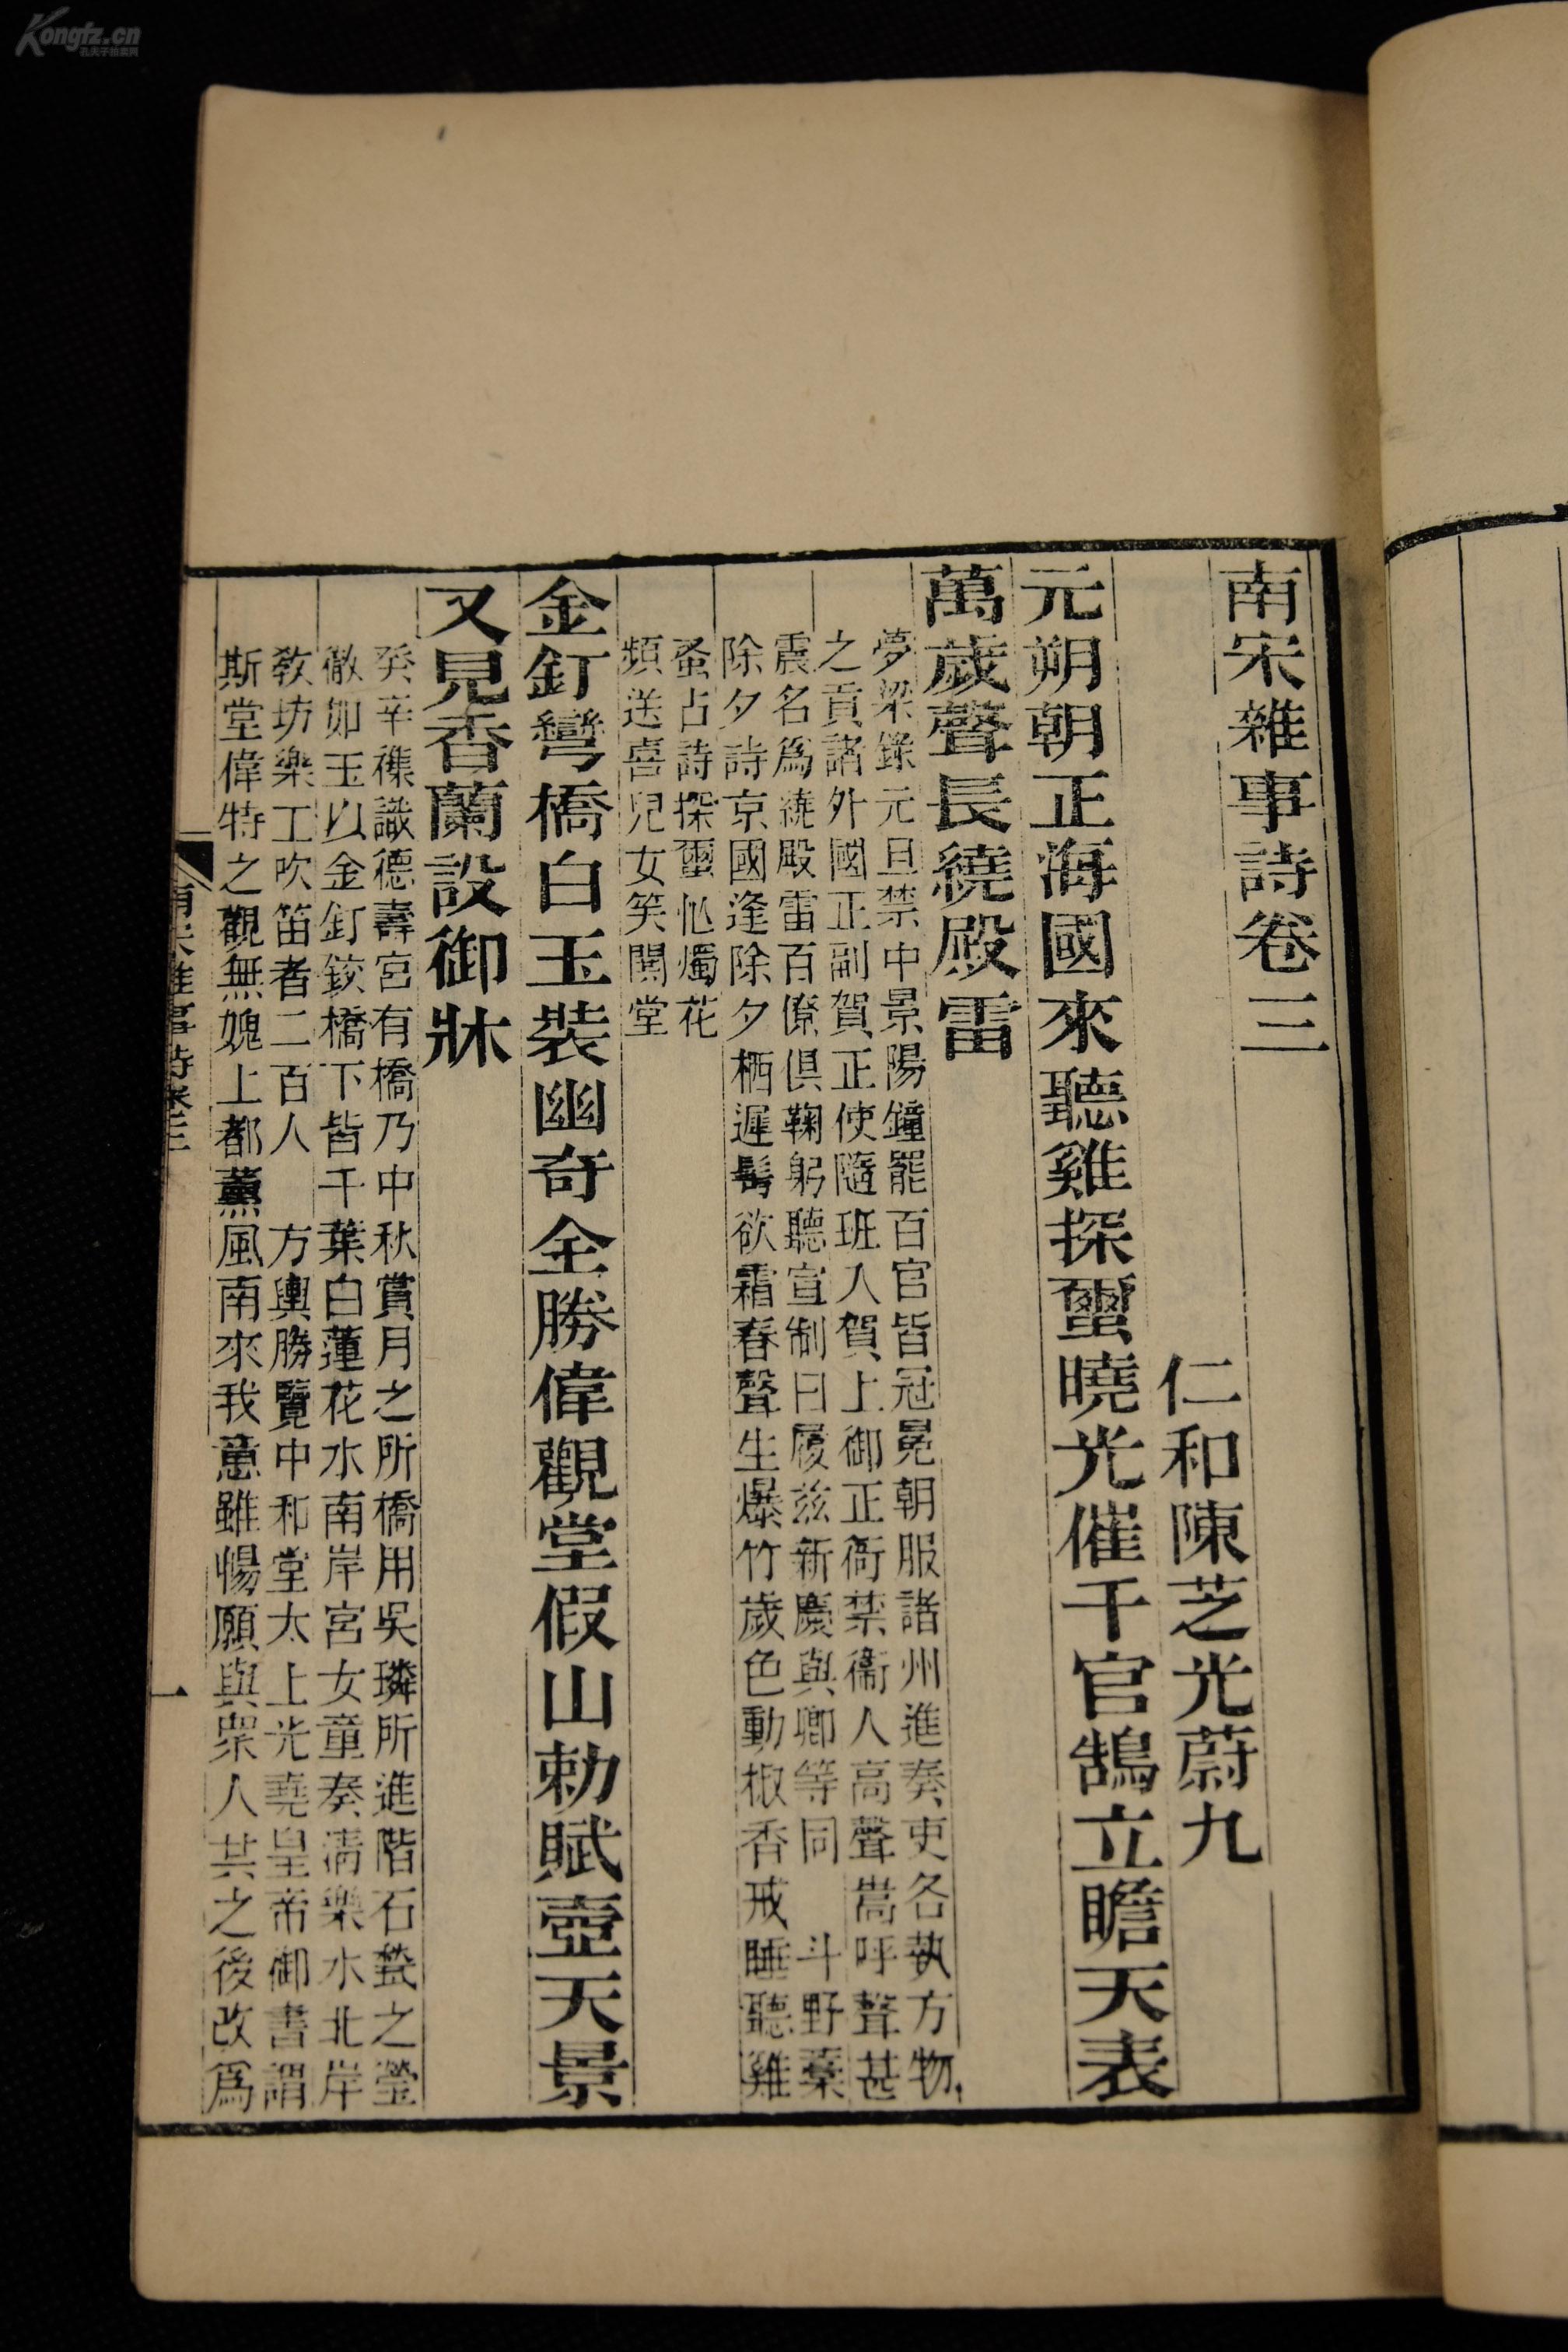 南宋雜事詩卷三
仁和陳芝光蔚九
元朔朝正海國來聽雞探璽曉光催千官鵠立瞻天表
萬歲聲長繞殿雷
夢梁錄元旦禁中景陽鐘罷百官皆冠冕朝服諸州進奏吏各執方物
之貢諸外國正副賀正使隨班入賀上御正衙禁衞人高聲嵩呼聲甚
震名爲繞殿雷百僚俱鞠躬聽宣制曰履兹新慶與卿等同 斗野藁
除夕詩京國逢除夕栖遲鬂欲霜春聲生爆竹歲色動椒香戒睡聽雞
蚤占詩探璽忙燭花
頻送喜兒女笑閧堂
金釘彎橋白玉裝幽奇全勝偉觀堂假山勅賦壺天景
又見香蘭設御牀
癸辛襍識德壽宮有橋乃中秋賞月之所橋用吳璘所進階石甃之瑩
徹如玉以金釘鉸橋下皆千葉白蓮花水南岸宮女童奏清樂水北岸
敎坊樂工吹笛者二百人 方輿勝覽中和堂太上光堯皇帝御書謂
斯堂偉特之觀無媿上都薰風南來我意雖暢願與衆人共之後改爲
南宋雜事詩卷三
一
Kongfz.cn
孔夫子拍卖网